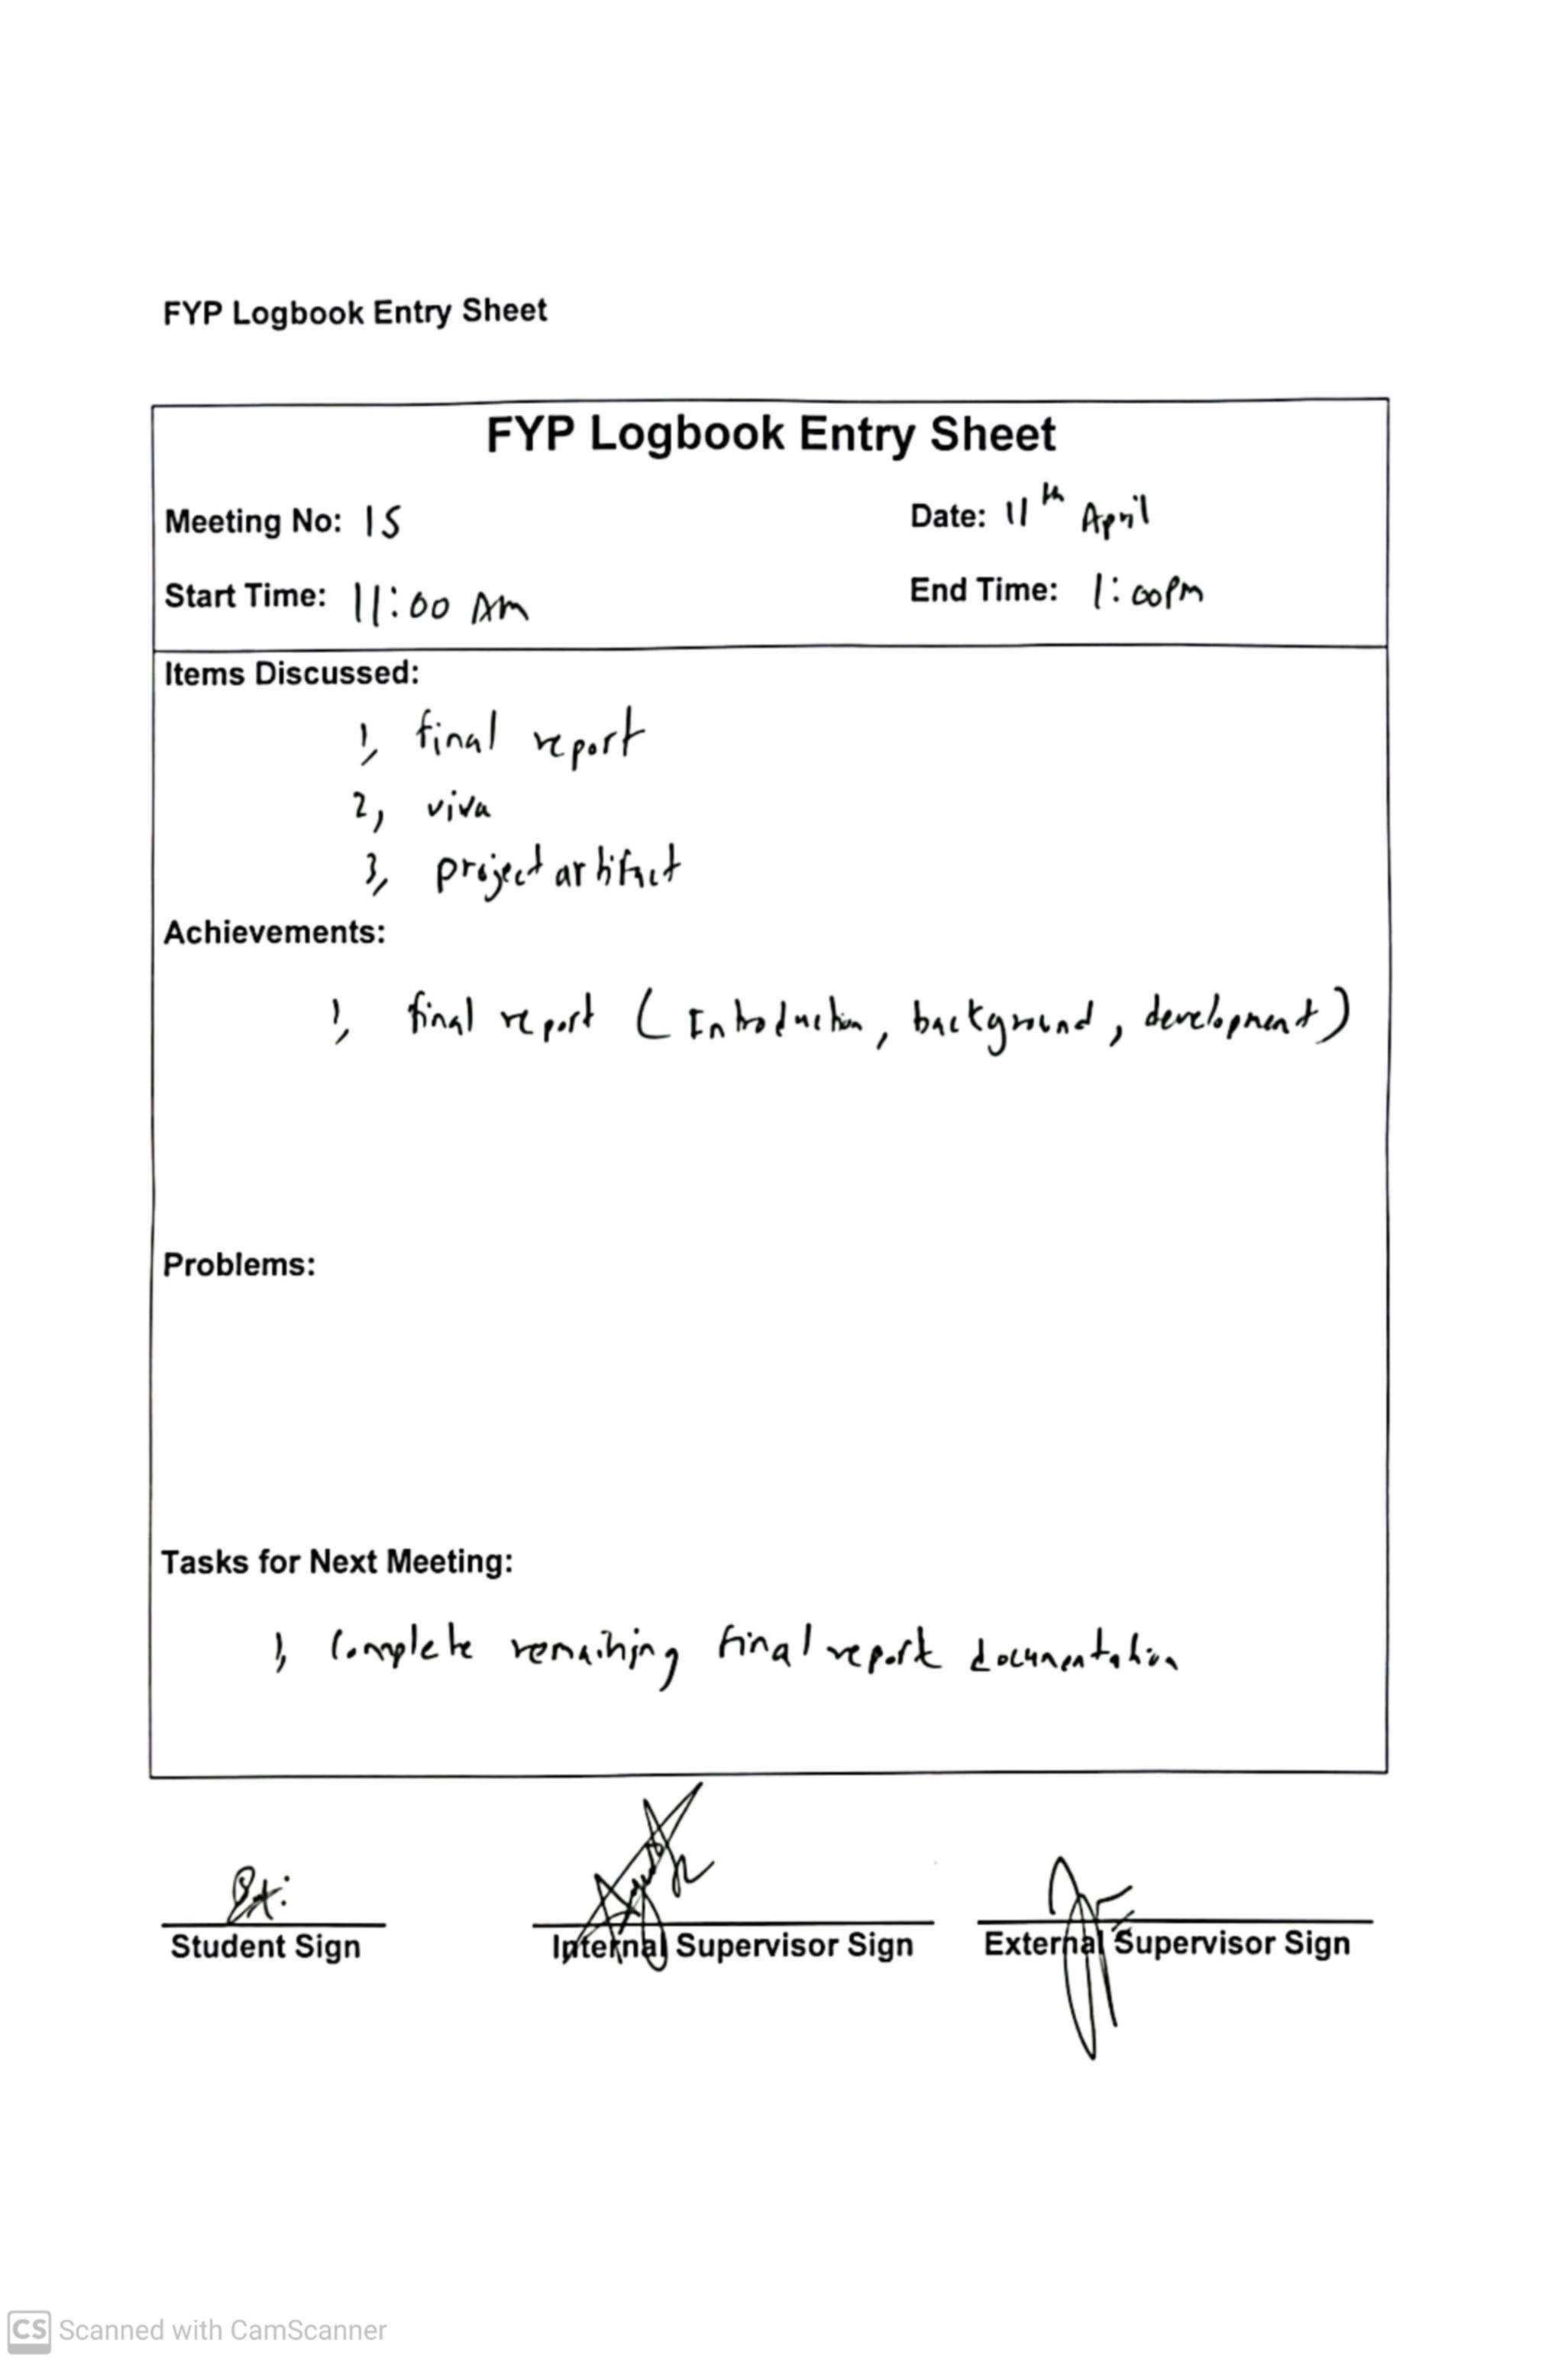 FYP Logbook Entry Sheet
FYP Logbook Entry Sheet
Meeting No: 15 Date: 11th April
Start Time: 11:00 AM End Time: 1:00PM
Items Discussed:
1, final report
2, viva
3, project artifact
Achievements:
1, final report (Introduction, background, development)
Problems:
Tasks for Next Meeting:
1, Complete remaining final report documentation
Student Sign Internal Supervisor Sign External Supervisor Sign
CS Scanned with CamScanner